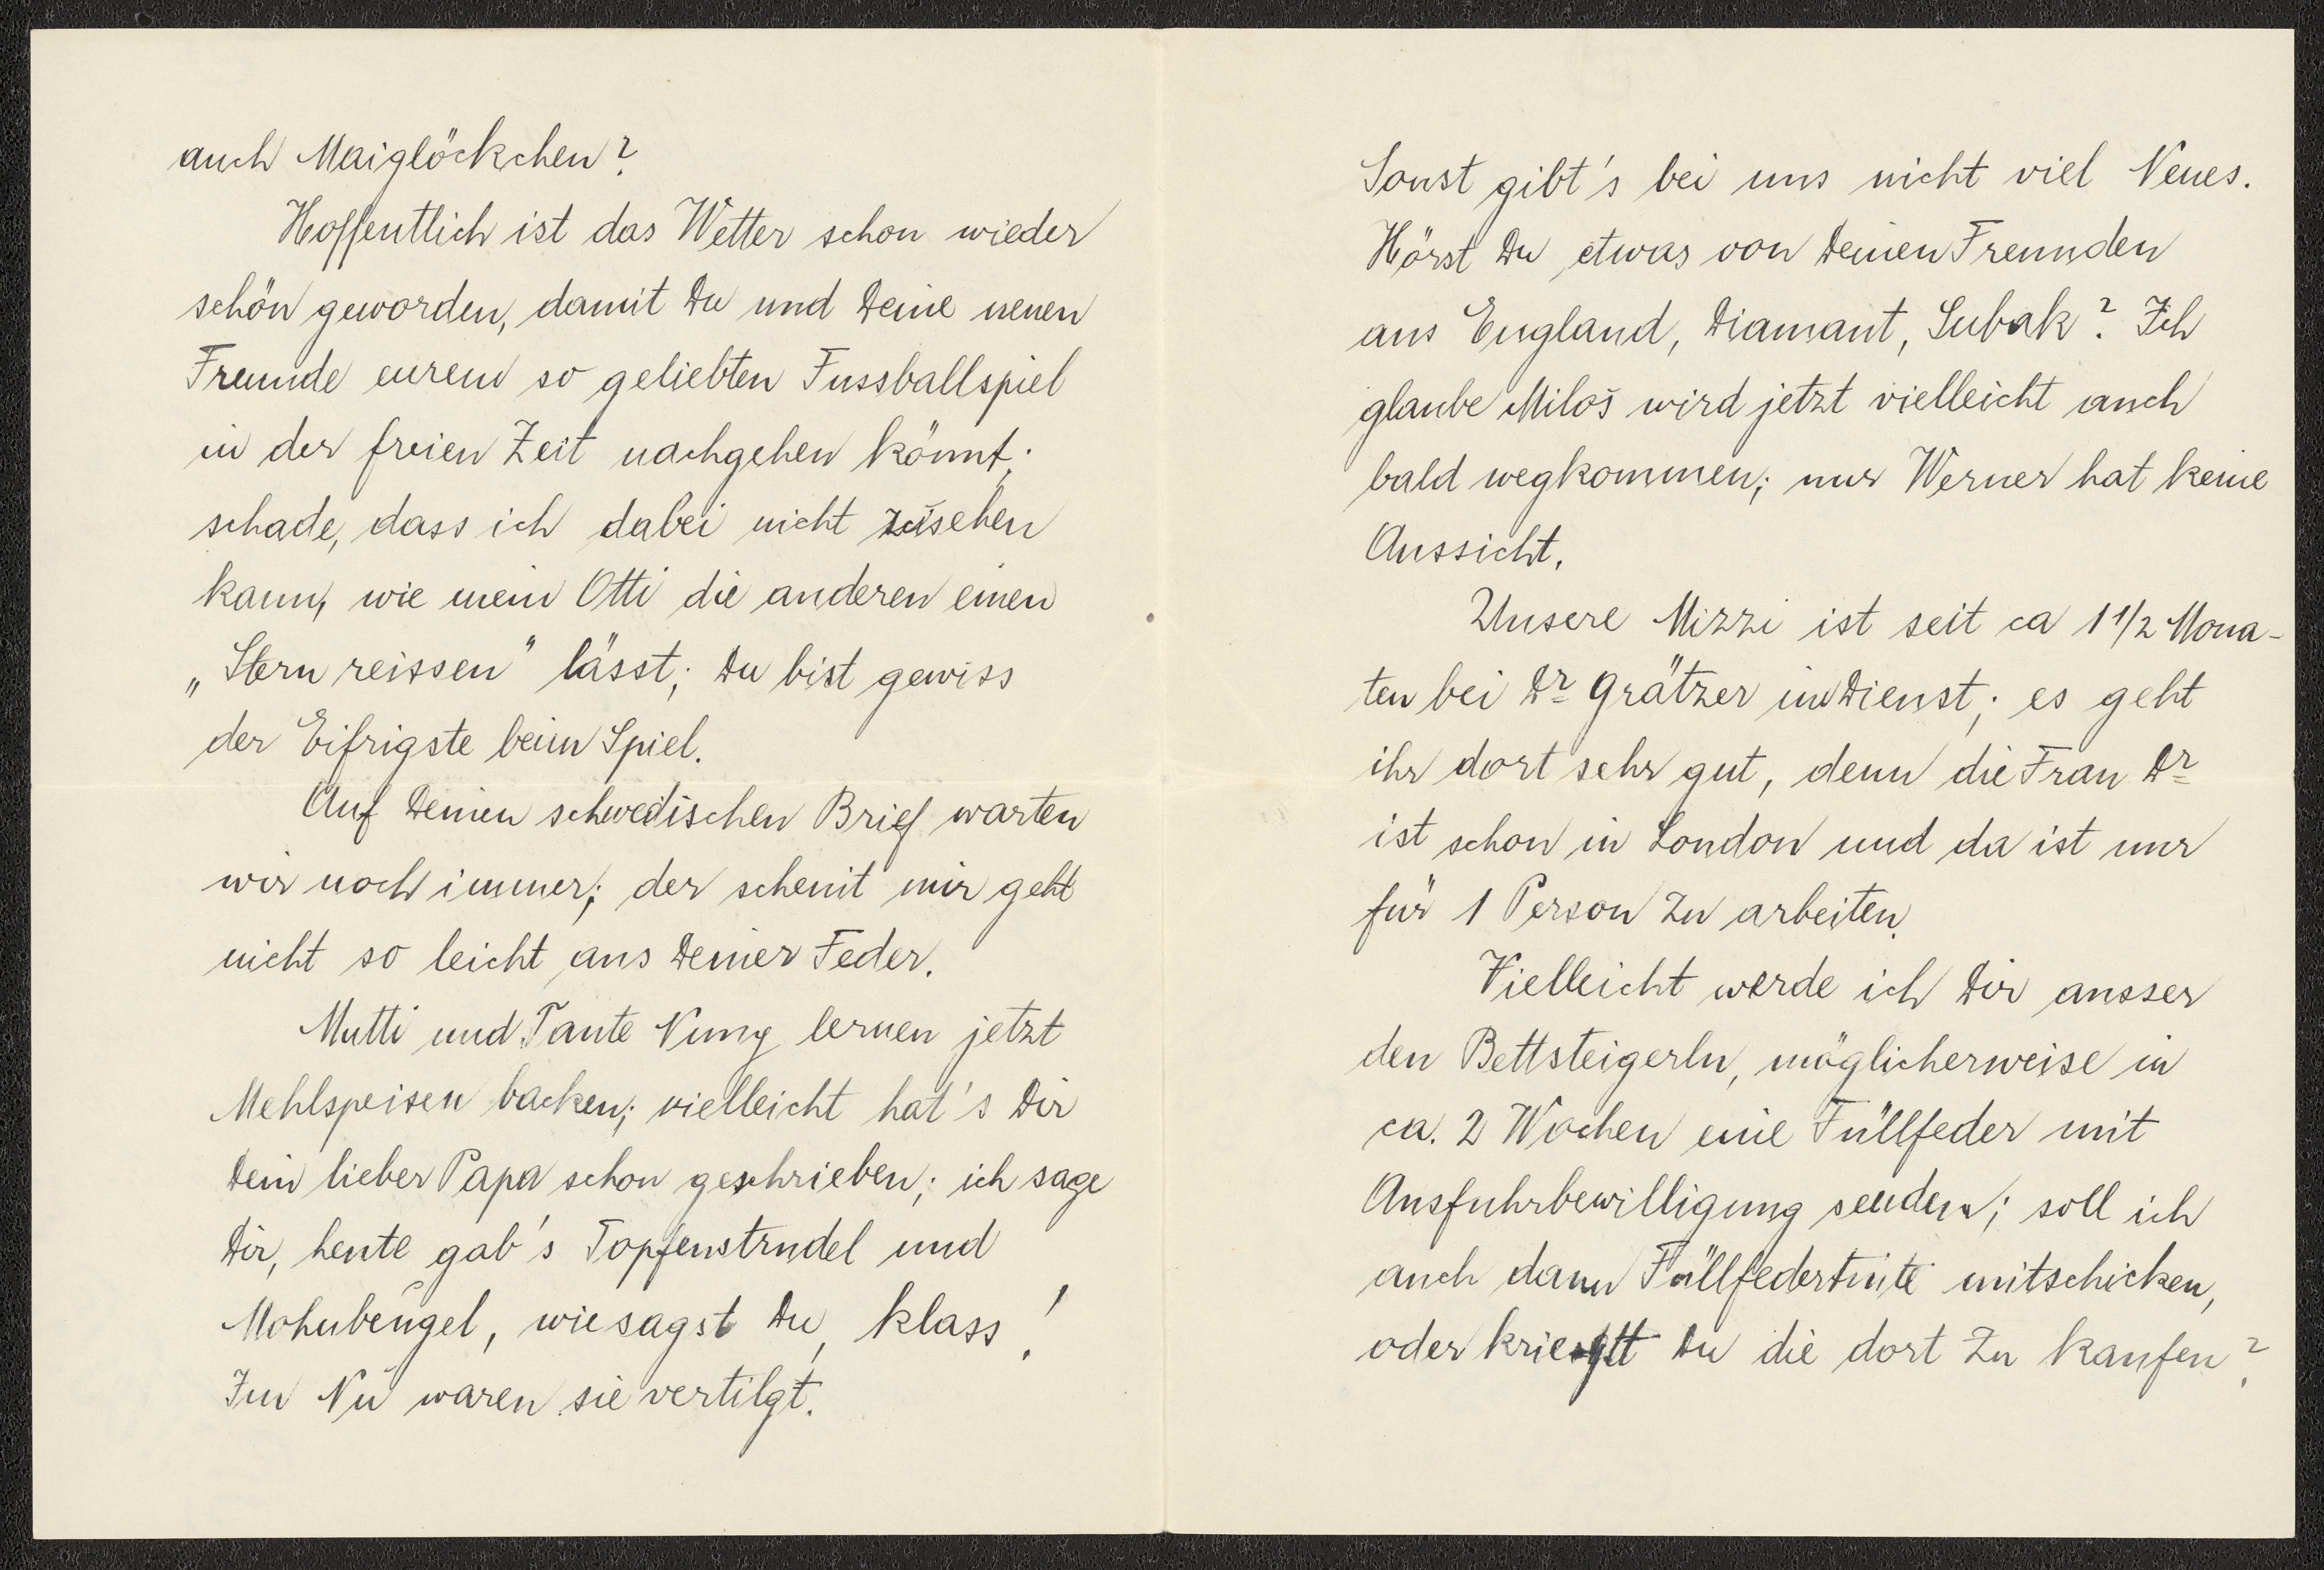 auch Maiglöckchen?
Hoffentlich ist das Wetter schon wieder
schön geworden, damit Du und Deine neuen
Freunde eurem so geliebten Fussballspiel
in der freien Zeit nachgehen könnt;
schade, dass ich dabei nicht zusehen
kann, wie mein Otti die anderen einen
„Stern reissen" lässt; Du bist gewiss
der Eifrigste beim Spiel.
Auf Deinen schwedischen Brief warten
wir noch immer; der scheint mir geht
nicht so leicht aus Deiner Feder.
Mutti und Tante Nuny lernen jetzt
Mehlspeisen backen; vielleicht hat's Dir
Dein lieber Papa schon geschrieben; ich sage
Dir, heute gab's Topfenstrudel und
Mohnbeugel, wie sagst Du, klass!
Im Nu waren sie vertilgt.
Sonst gibt's bei uns nicht viel Neues.
Hörst Du etwas von Deinen Freunden
aus England, Diamant, Subak? Ich
glaube Miloš wird jetzt vielleicht auch
bald wegkommen; nur Werner hat keine
Aussicht.
Unsere Mizzi ist seit ca 1 1/2 Mona-
ten bei Dr Grätzer in Dienst; es geht
ihr dort sehr gut, denn die Frau Dr
ist schon in London und da ist nur
für 1 Person zu arbeiten.
Vielleicht werde ich Dir ausser
den Bettsteigerln, möglicherweise in
ca. 2 Wochen eine Füllfeder mit
Ausfuhrbewilligung senden; soll ich
auch dann Füllfedertinte mitschicken,
oder Du die dort zu kaufen?